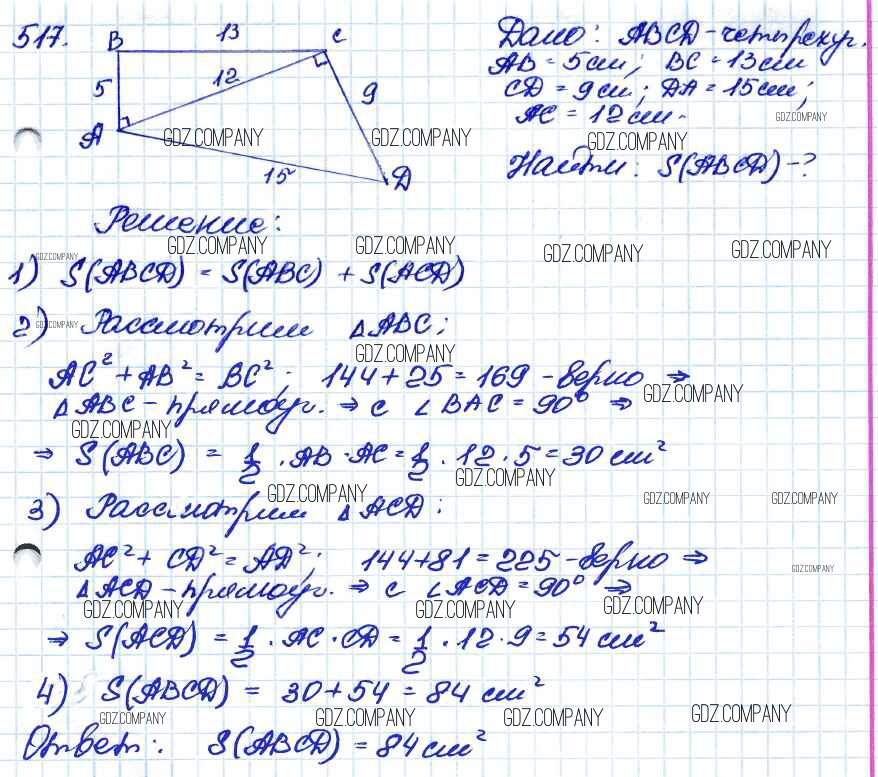 517.
B 13 C
5 12 9
A 15 D
Дано: ABCD - четырехуг.
AB = 5см; BC = 13см
CD = 9см; DA = 15см;
AC = 12см.
Найти: S(ABCD) - ?
Решение:
1) S(ABCD) = S(ABC) + S(ACD)
2) Рассмотрим △ABC;
AC² + AB² = BC²; 144 + 25 = 169 - верно ⇒
△ABC - прямоуг. ⇒ с ∠BAC = 90° ⇒
⇒ S(ABC) = 1/2 · AB · AC = 1/2 · 12 · 5 = 30 см²
3) Рассмотрим △ACD:
AC² + CD² = AD²; 144 + 81 = 225 - верно ⇒
△ACD - прямоуг. ⇒ с ∠ACD = 90° ⇒
⇒ S(ACD) = 1/2 · AC · CD = 1/2 · 12 · 9 = 54 см²
4) S(ABCD) = 30 + 54 = 84 см²
Ответ: S(ABCD) = 84 см²
GDZ.COMPANY